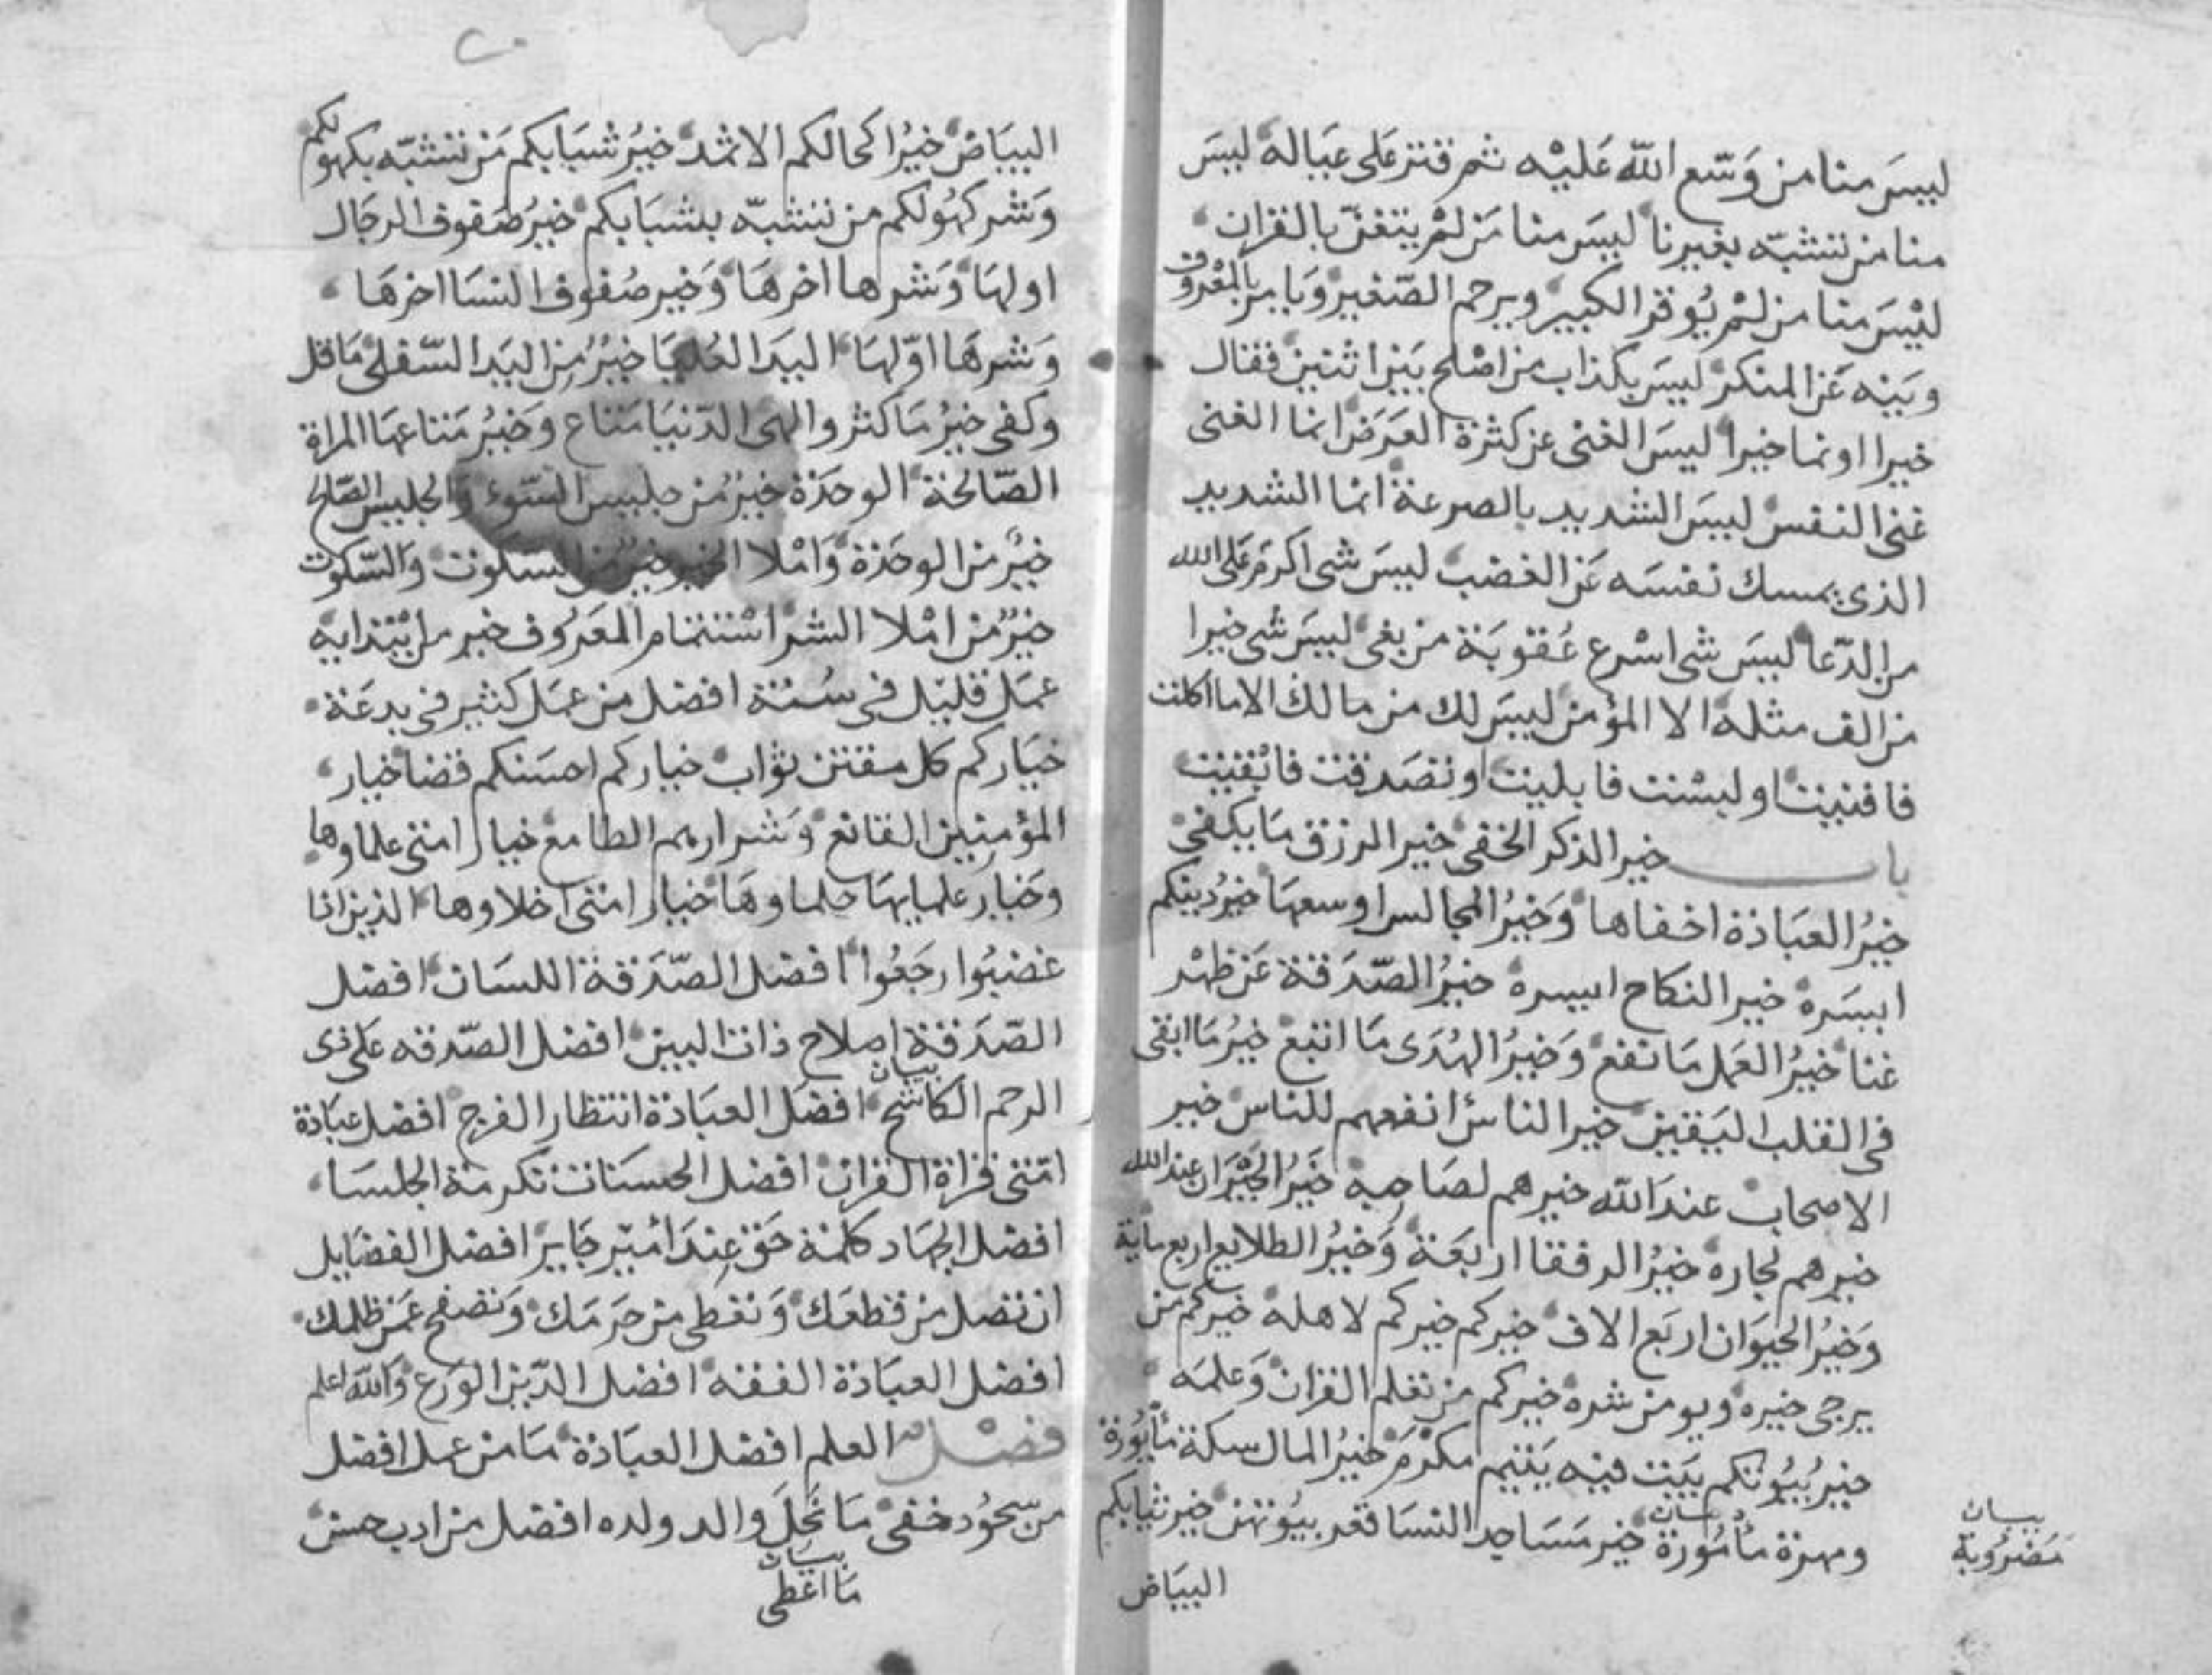 ليس منا من وسع الله عليه ثم قتر على عياله ليس
منا من تشبه بغيرنا ليس منا من لم يتغن بالقران
ليس منا من لم يوقر الكبير ويرحم الصغير ويامر بالمعروف
وينه عن المنكر ليس بكذاب من اصلح بين اثنين فقال
خيرا او نما خيرا ليس الغنى عن كثرة العرض انما الغنى
غنى النفس ليس الشديد بالصرعة انما الشديد
الذى يمسك نفسه عن الغضب ليس شى اكرم على الله
من الدعا ليس شى اسرع عقوبة من بغى ليس شى خيرا
من الف مثله الا المؤمن ليس لك من مالك الا ما اكلت
فافنيت او لبست فابليت او تصدقت فابقيت
باب خير الذكر الخفى خير الرزق ما يكفى
خير العبادة اخفاها وخير المجالس اوسعها خير دينكم
ايسره خير النكاح ايسره خير الصدقة عن ظهر
غنا خير العمل ما نفع وخير الهدى ما اتبع خير ما ابقى
فى القلب اليقين خير الناس انفعهم للناس خير
الاصحاب عند الله خيرهم لصاحبه خير الجيران عند الله
خيرهم لجاره خير الرفقا اربعة وخير الطلايع اربع ماية
وخير الحيوان اربع الاف خيركم خيركم لاهله خيركم من
يرجى خيره ويومن شره خيركم من تعلم القران وعلمه
خير بيوتكم بيت فيه يتيم مكرم خير المال سكة مأبورة
ومهرة مأمورة خير مساجد النسا قعر بيوتهن خير ثيابكم
بيان
بيان
مضروبة
البياض
البياض خير اكحالكم الاثمد خير شبابكم من تشبه بكهولكم
وشر كهولكم من تشبه بشبابكم خير صفوف الرجال
اولها وشرها اخرها وخير صفوف النسا اخرها
وشرها اولها اليد العليا خير من اليد السفلى ما قل
وكفى خير ما كثر والهى الدنيا متاع وخير متاعها المراة
الصالحة الوحدة خير من جليس السوء والجليس الصالح
خير من الوحدة واملا الخير خير من السكوت والسكوت
خير من املا الشر استتمام المعروف خير من ابتدايه
عمل قليل فى سنة افضل من عمل كثير فى بدعة
خياركم كل مفتتن تواب خياركم احسنكم قضا خيار
المؤمنين القانع وشرارهم الطامع خيار امتى علماوها
وخيار علمايها حلماوها خيار امتى احداوها الذين اذا
غضبوا رجعوا افضل الصدقة اللسان افضل
الصدقة اصلاح ذات البين افضل الصدقه على ذى
بيان
الرحم الكاشح افضل العبادة انتظار الفرج افضل عبادة
امتى قراة القران افضل الحسنات تكرمة الجلسا
افضل الجهاد كلمة حق عند امير جاير افضل الفضايل
ان تصل من قطعك وتعطى من حرمك وتصفح عمن ظلمك
افضل العبادة الفقه افضل الدين الورع والله اعلم
فضل العلم افضل العبادة ما من عمل افضل
من سجود خفى ما نحل والد ولده افضل من ادب حسن
بيان
ما اعطى